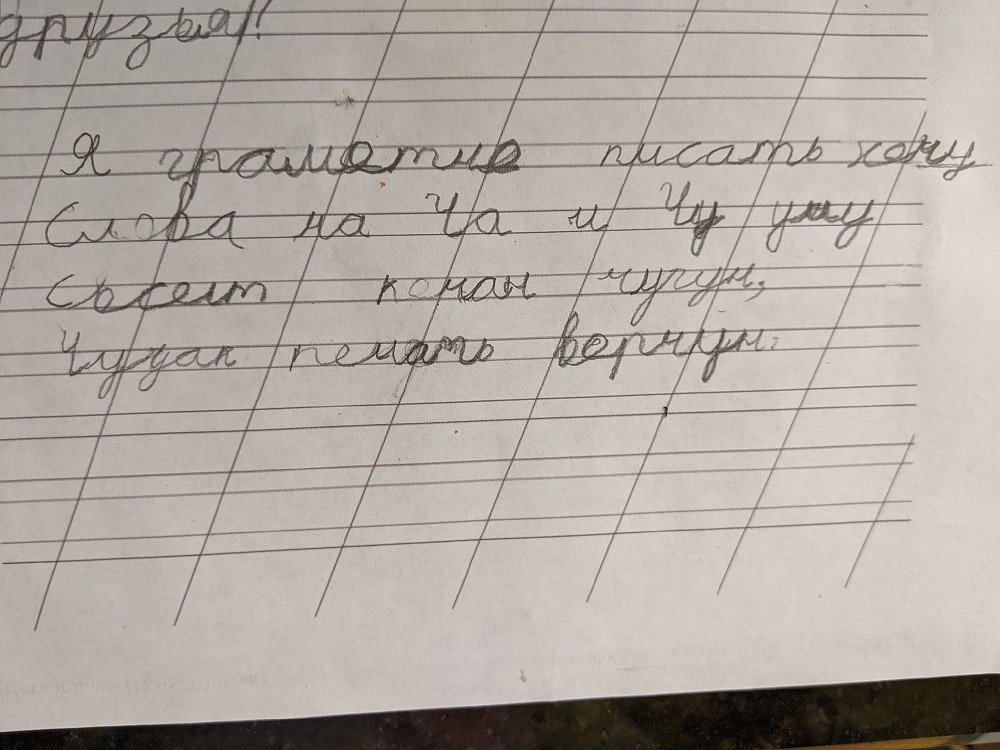 друзья!
Я граметно писать хочу
Слова на Ча и Чу учу
кочан чугун,
Чудак печать верчун.